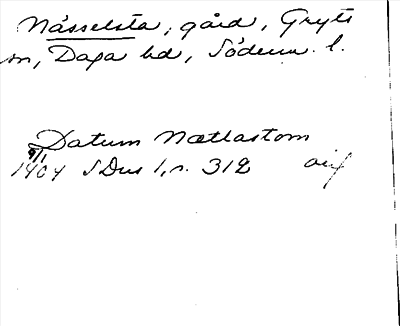 Nässelsta, gård, Gryts
sn, Daga hd, Söderm. l.
Datum Nætlastom
9/1
1404 SDns 1, n. 312 orig